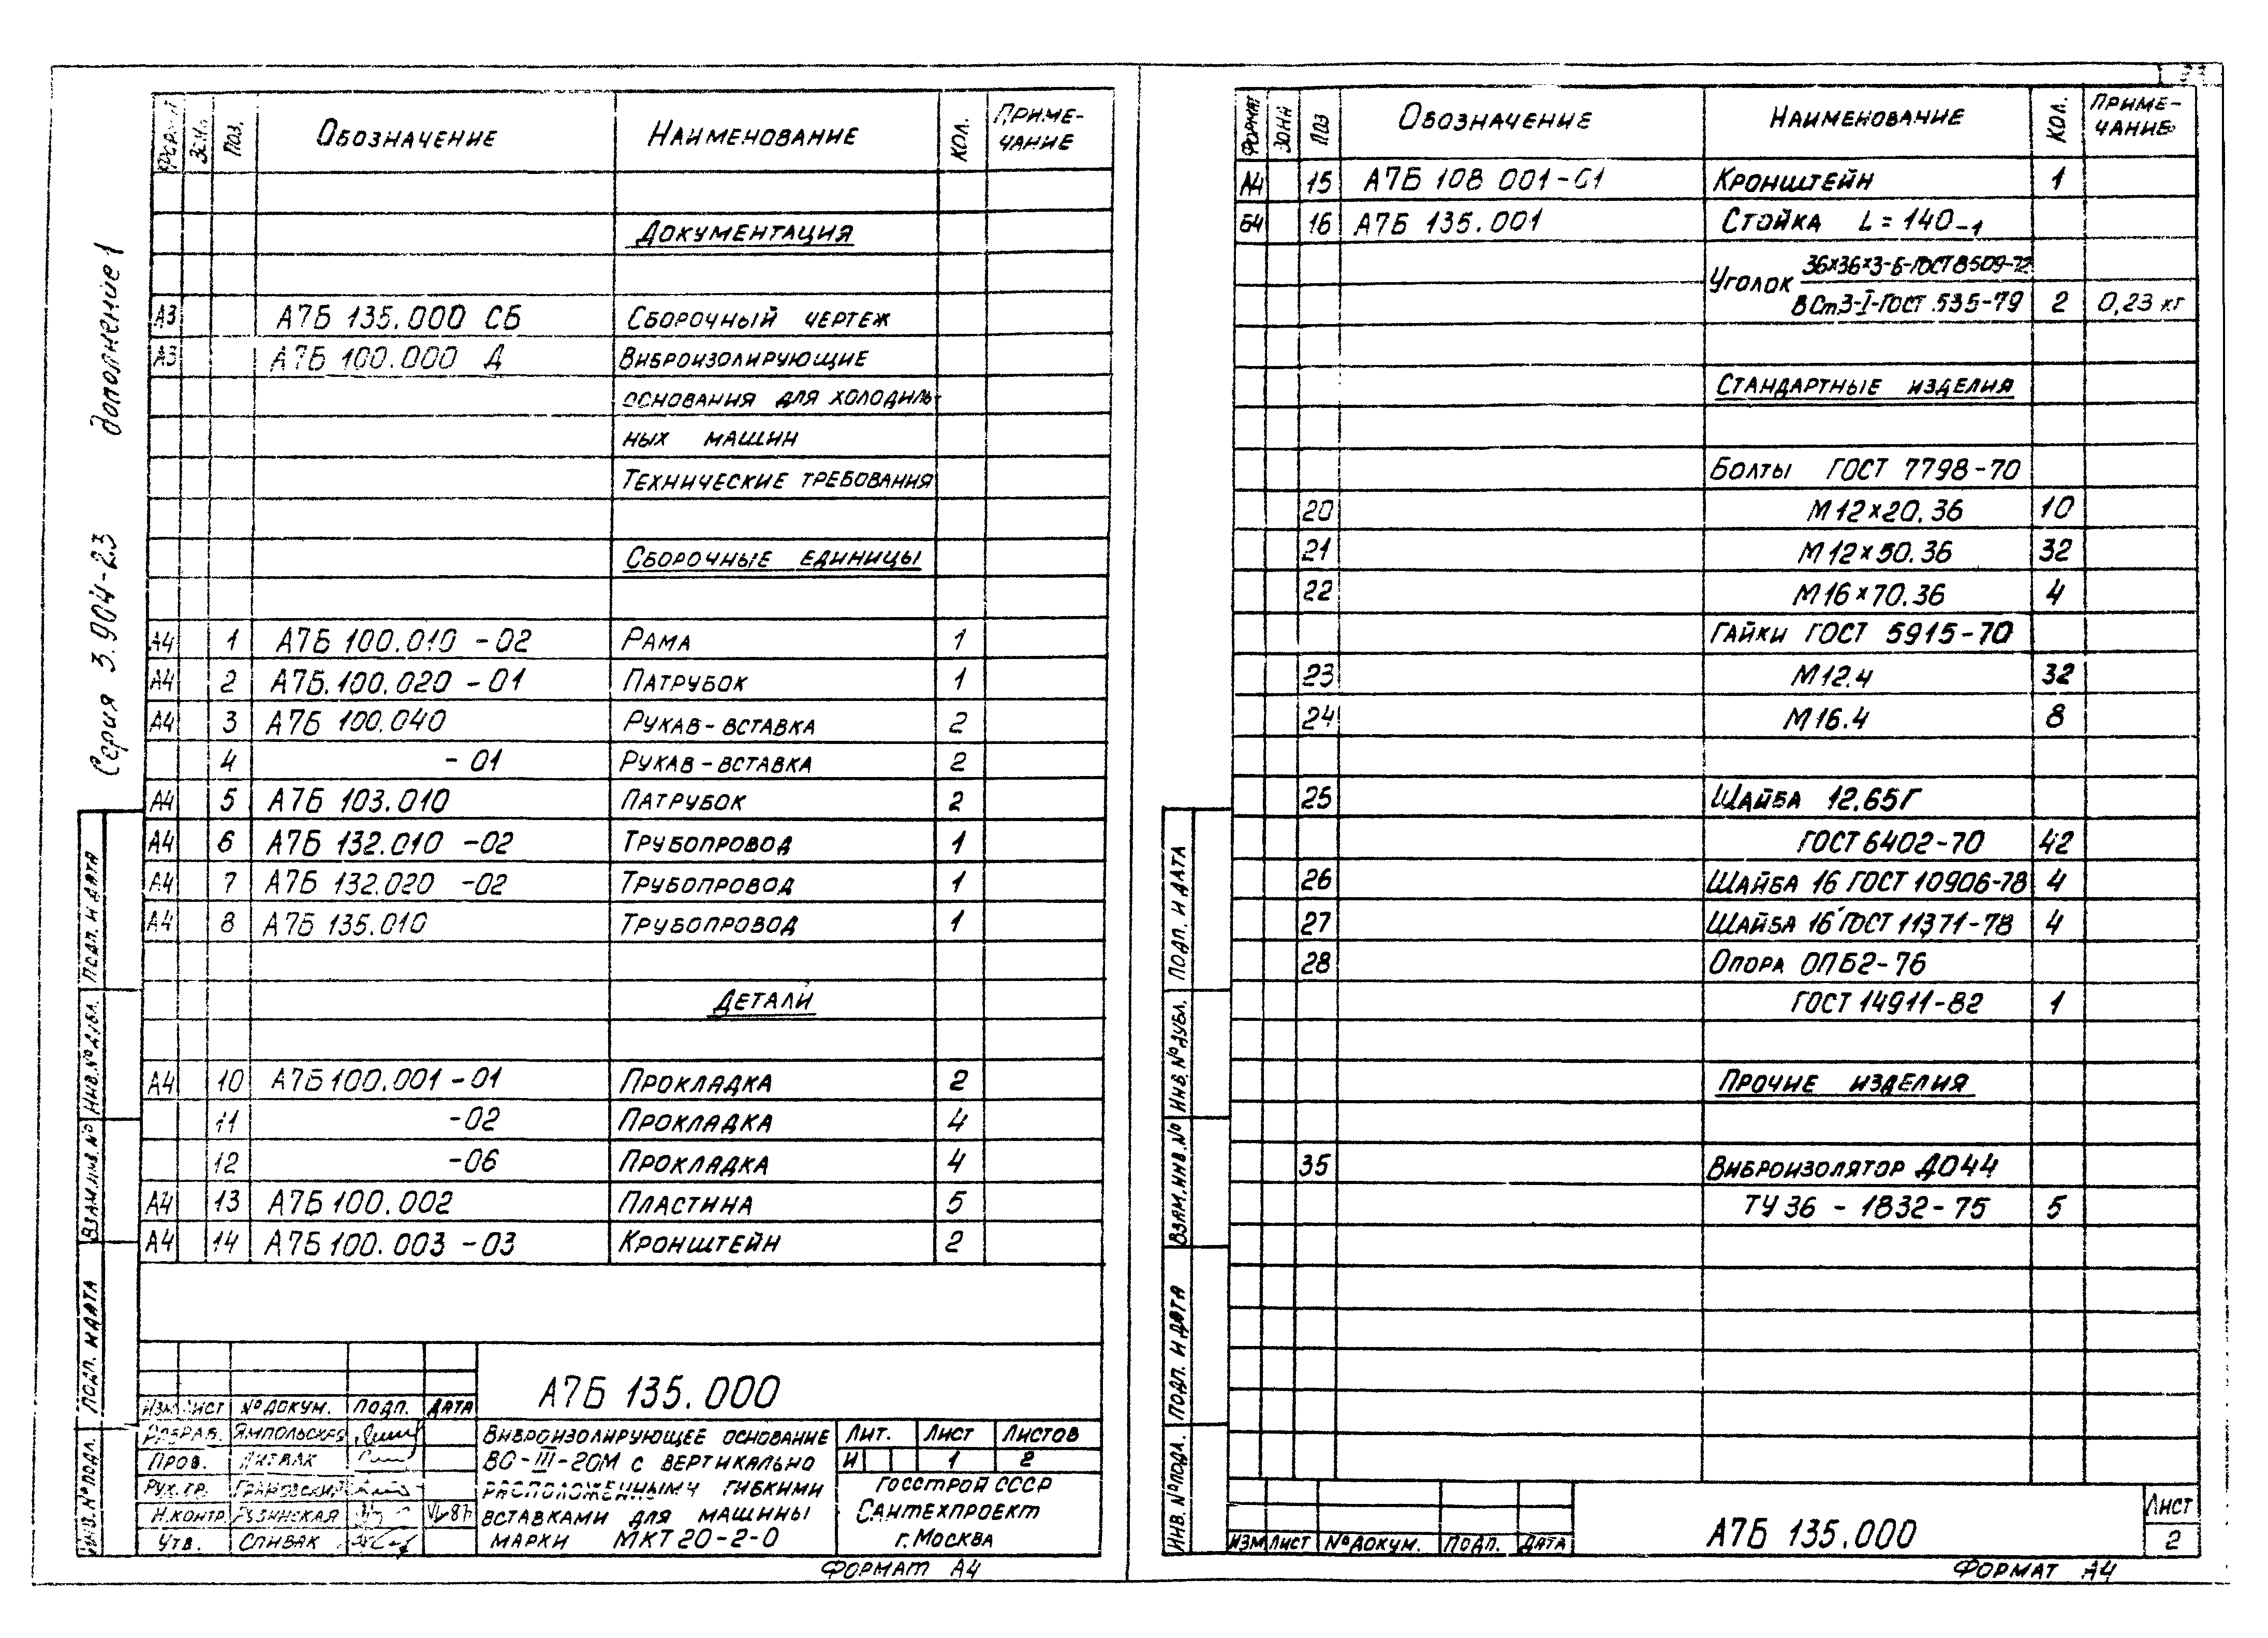 Серия 3.904-23 дополнение 1
Формат Зона Поз. Обозначение Наименование Кол. Приме-чание
Документация
А3 А7Б 135.000 СБ Сборочный чертеж
А3 А7Б 100.000 Д Виброизолирующие
основания для холодиль-
ных машин
Технические требования
Сборочные единицы
А4 1 А7Б 100.010 -02 Рама 1
А4 2 А7Б.100.020 -01 Патрубок 1
А4 3 А7Б 100.040 Рукав-вставка 2
4 -01 Рукав-вставка 2
А4 5 А7Б 103.010 Патрубок 2
А4 6 А7Б 132.010 -02 Трубопровод 1
А4 7 А7Б 132.020 -02 Трубопровод 1
А4 8 А7Б 135.010 Трубопровод 1
Детали
А4 10 А7Б 100.001 -01 Прокладка 2
11 -02 Прокладка 4
12 -06 Прокладка 4
А4 13 А7Б 100.002 Пластина 5
А4 14 А7Б 100.003 -03 Кронштейн 2
Инв.№подл. Подп. и дата Взам.инв.№ Инв.№дубл. Подп. и дата
А7Б 135.000
Изм Лист №докум. Подп. Дата
Разраб. Ямпольская
Пров. Литвак
Рук.гр. Грановский
Н.контр
Утв. Спивак
Виброизолирующее основание
ВО-III-20М с вертикально
расположенными гибкими
вставками для машины
марки МКТ20-2-0
Лит. Лист Листов
И 1 2
Госстрой СССР
Сантехпроект
г.Москва
Формат А4
Формат Зона Поз Обозначение Наименование Кол. Приме-чание
А4 15 А7Б 108 001-01 Кронштейн 1
Б4 16 А7Б 135.001 Стойка L=140-1
Уголок 36×36×3-Б-ГОСТ 8509-72
ВСт3-I-ГОСТ 535-79 2 0,23 кг
Стандартные изделия
Болты ГОСТ 7798-70
20 М12×20.36 10
21 М12×50.36 32
22 М16×70.36 4
Гайки ГОСТ 5915-70
23 М12.4 32
24 М16.4 8
25 Шайба 12.65Г
ГОСТ 6402-70 42
26 Шайба 16 ГОСТ 10906-78 4
27 Шайба 16 ГОСТ 11371-78 4
28 Опора ОПБ2-76
ГОСТ 14911-82 1
Прочие изделия
35 Виброизолятор ДО44
ТУ 36 - 1832-75 5
Инв.№подл. Подп. и дата Взам.инв.№ Инв.№дубл. Подп. и дата
Изм Лист №докум. Подп. Дата
А7Б 135.000
Лист
2
Формат А4